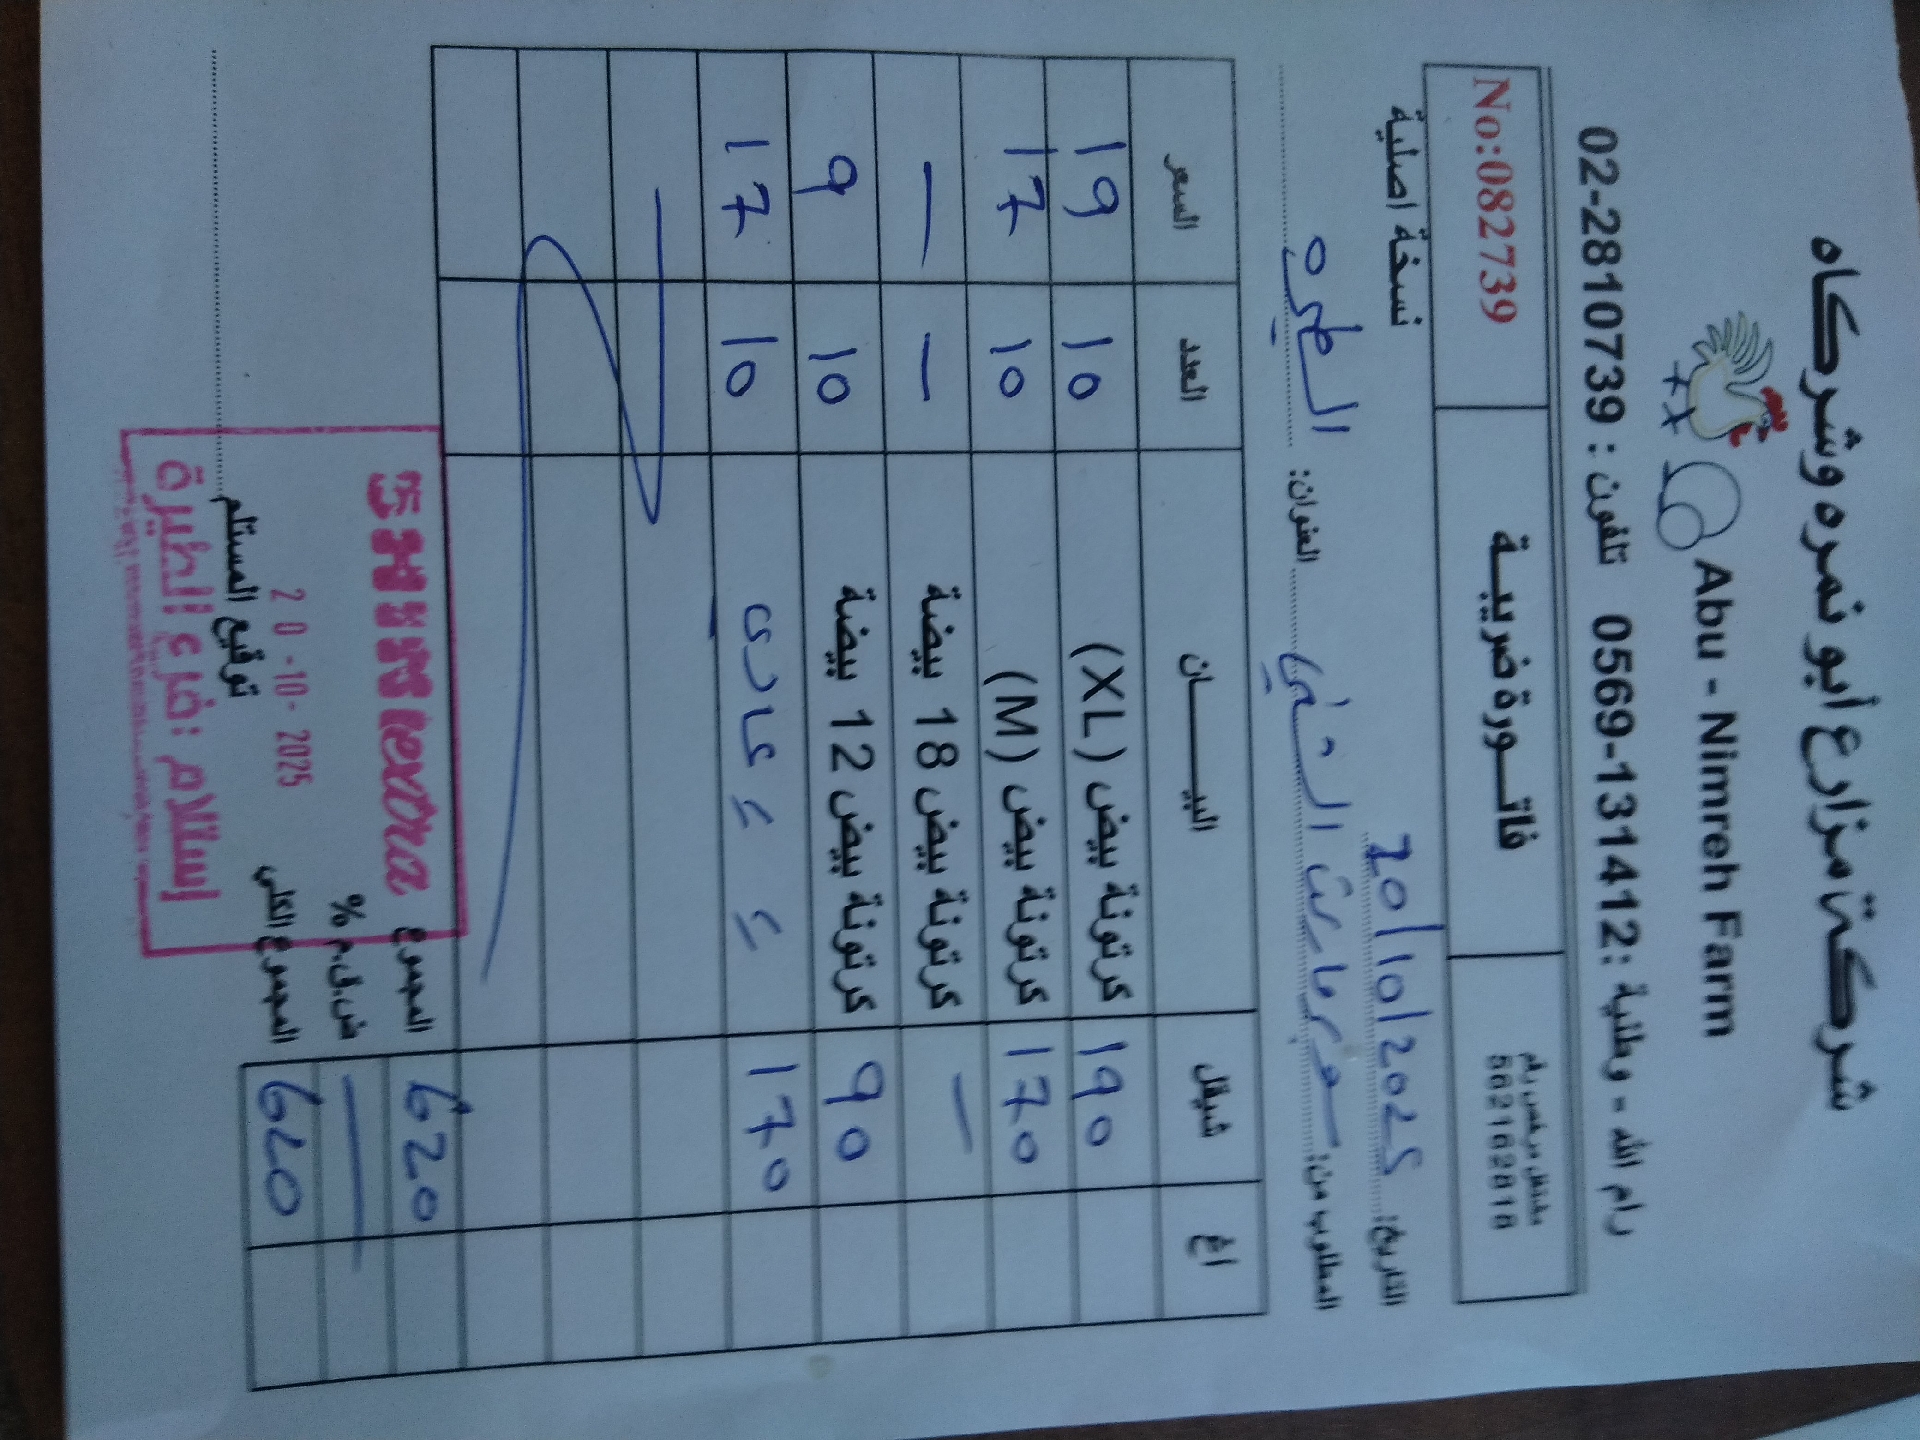 شركة مزارع أبو نمره وشركاه
Abu - Nimreh Farm
رام الله - وطنية : 0569-131412 تلفون : 02-2810739
مشتغل مرخص رقم
فاتـــورة ضريبيـــة
No:082739
التاريخ: 20/10/2025
نسخة اصلية
المطلوب من: سوبرماركت العنوان: الطيره
اغ شيقل البيـــــــان العدد السعر
190 كرتونة بيض (XL) 10 19
170 كرتونة بيض (M) 10 17
— كرتونة بيض 18 بيضة — —
90 كرتونة بيض 12 بيضة 10 9
170 = = عادي 10 17
المجموع 620
ض.ق.م % —
المجموع الكلي 620
توقيع المستلم
extra
20-10-2025
إستلام : فرع الطيرة